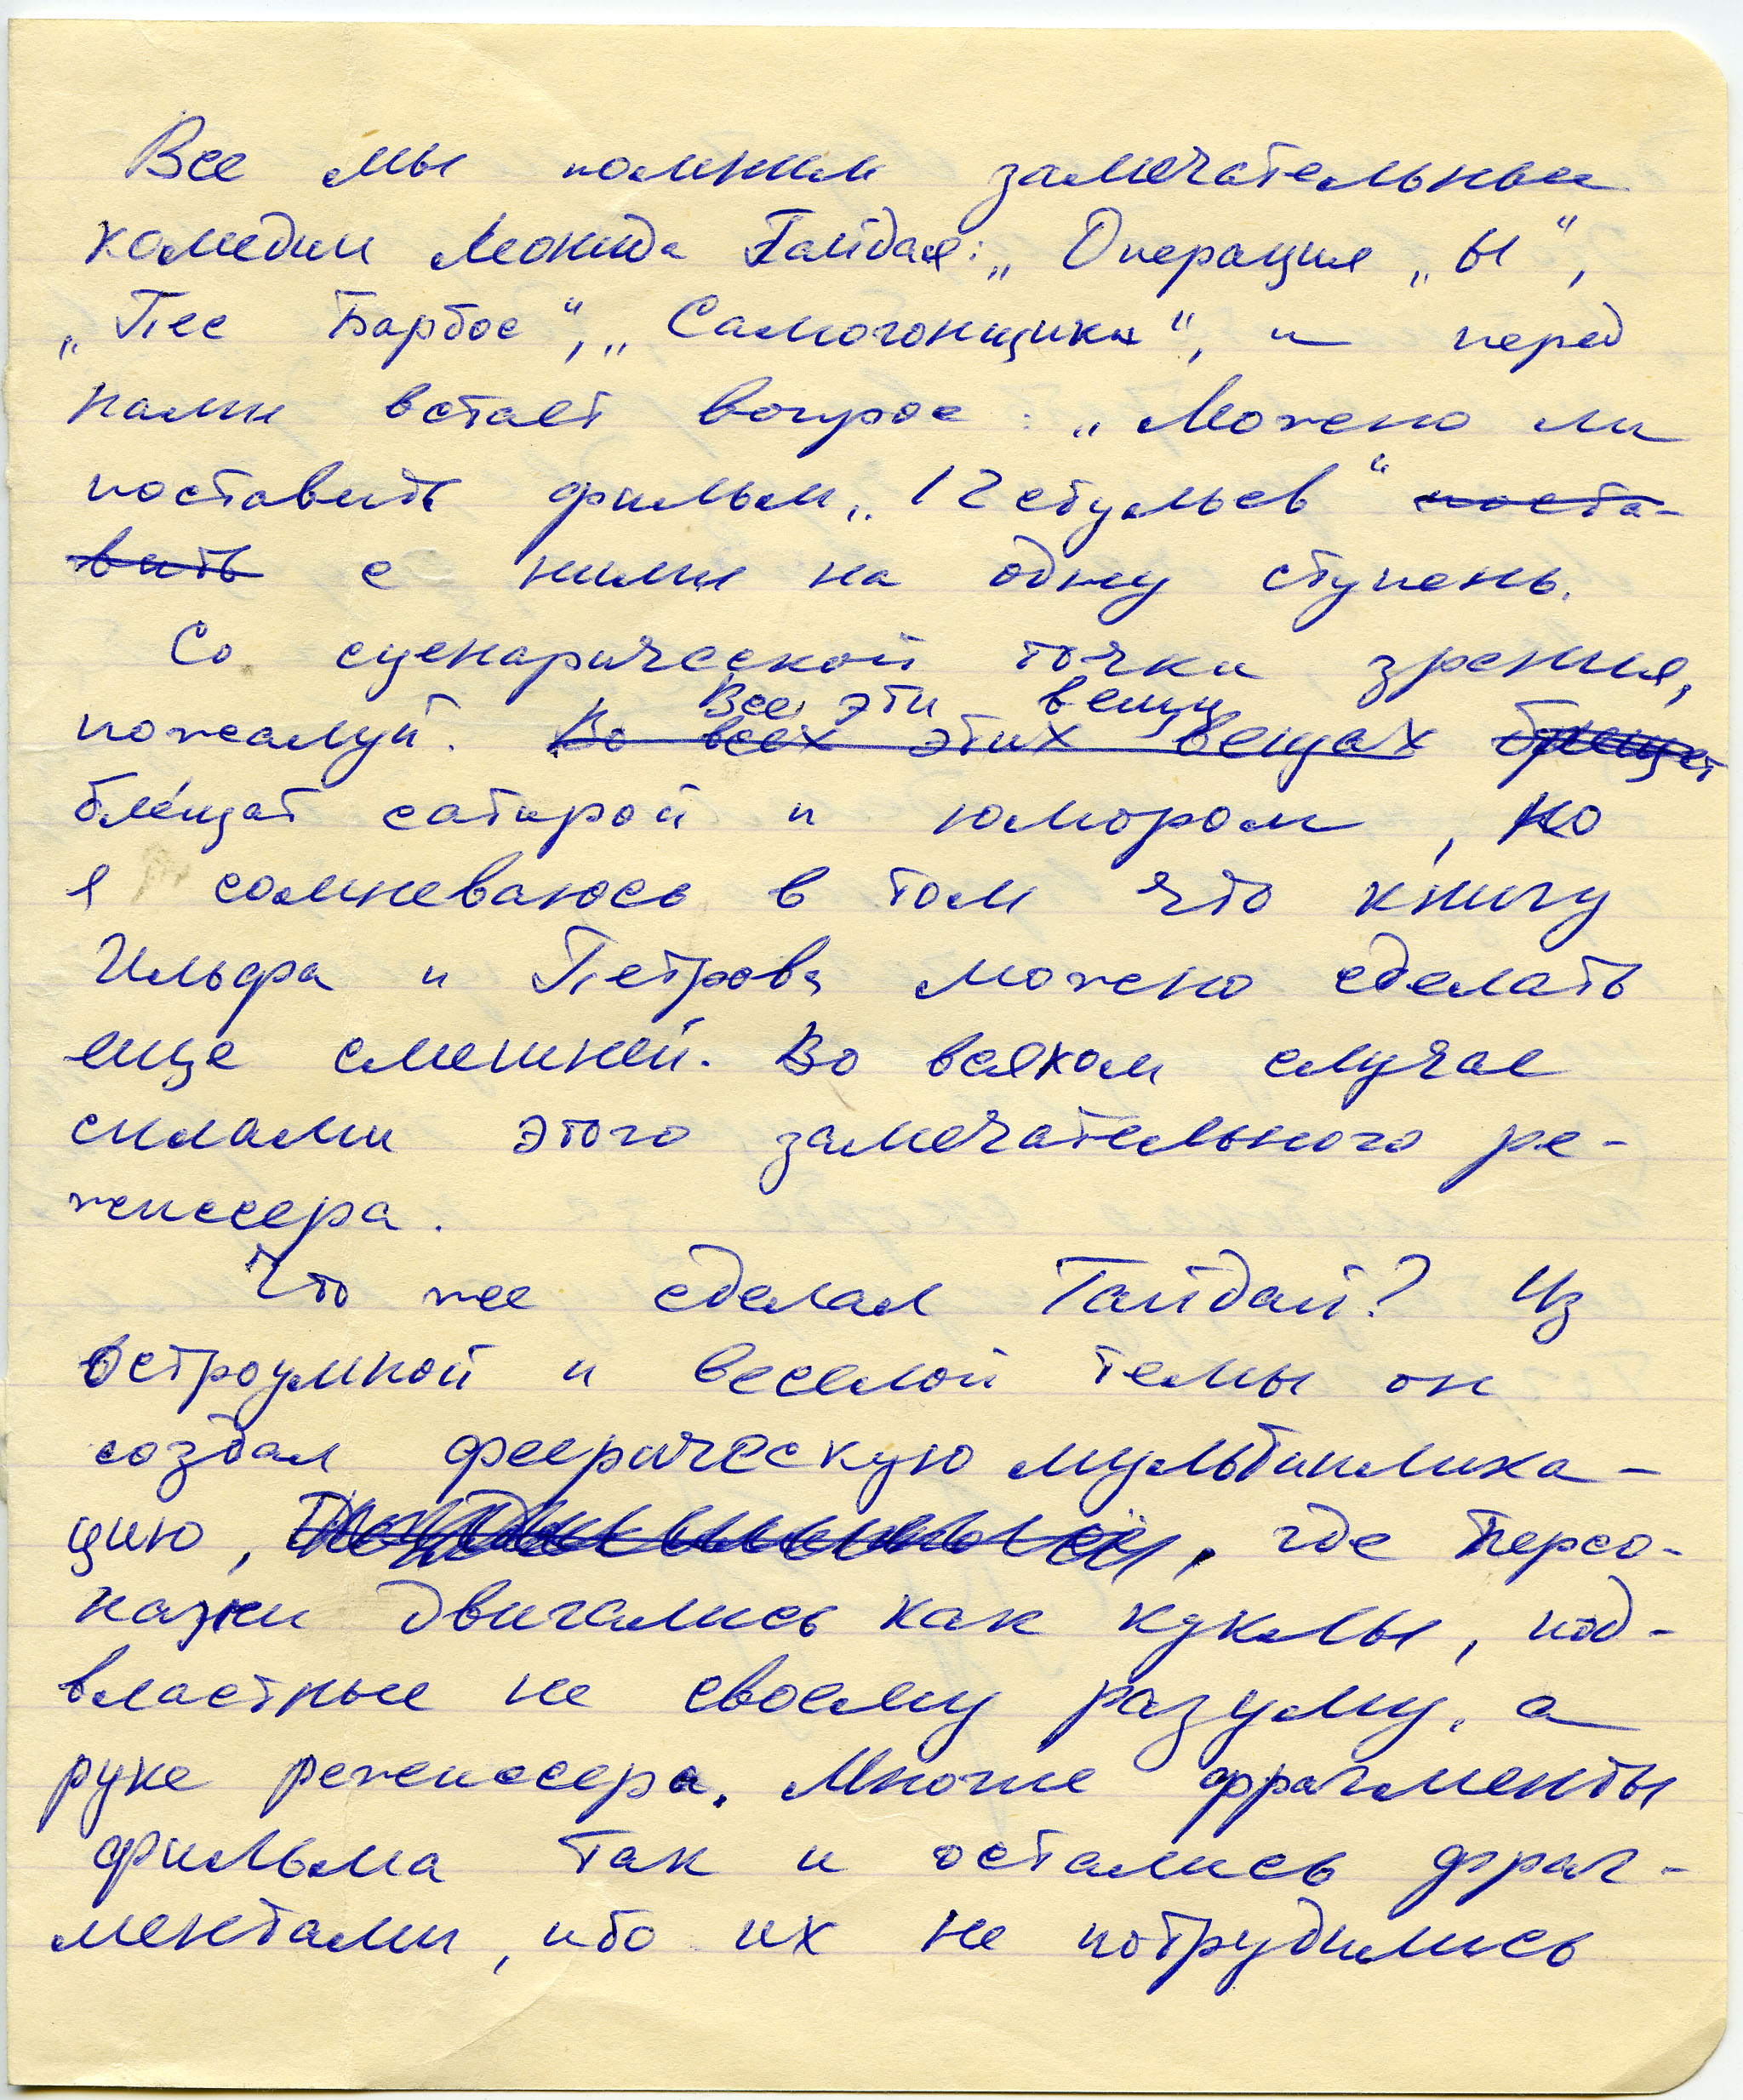 Все мы помним замечательные
комедии Леонида Гайдая: „Операция „Ы“,
„Пес Барбос“, „Самогонщики“, и перед
нами встает вопрос: „Можно ли
поставить фильм „12 стульев“ поста-
вить с ними на одну ступень.
Со сценарической точки зрения,
Все эти вещи
пожалуй. Во всех этих вещах блещет
блещат сатирой и юмором, но
я сомневаюсь в том что книгу
Ильфа и Петрова можно сделать
еще смешней. Во всяком случае
силами этого замечательного ре-
жиссера.
Что же сделал Гайдай? Из
остроумной и веселой темы он
создал феерическую мультиплика-
цию, где персо-
нажи двигались как куклы, под-
властные не своему разуму, а
руке режиссера. Многие фрагменты
фильма так и остались фраг-
ментами, ибо их не потрудились